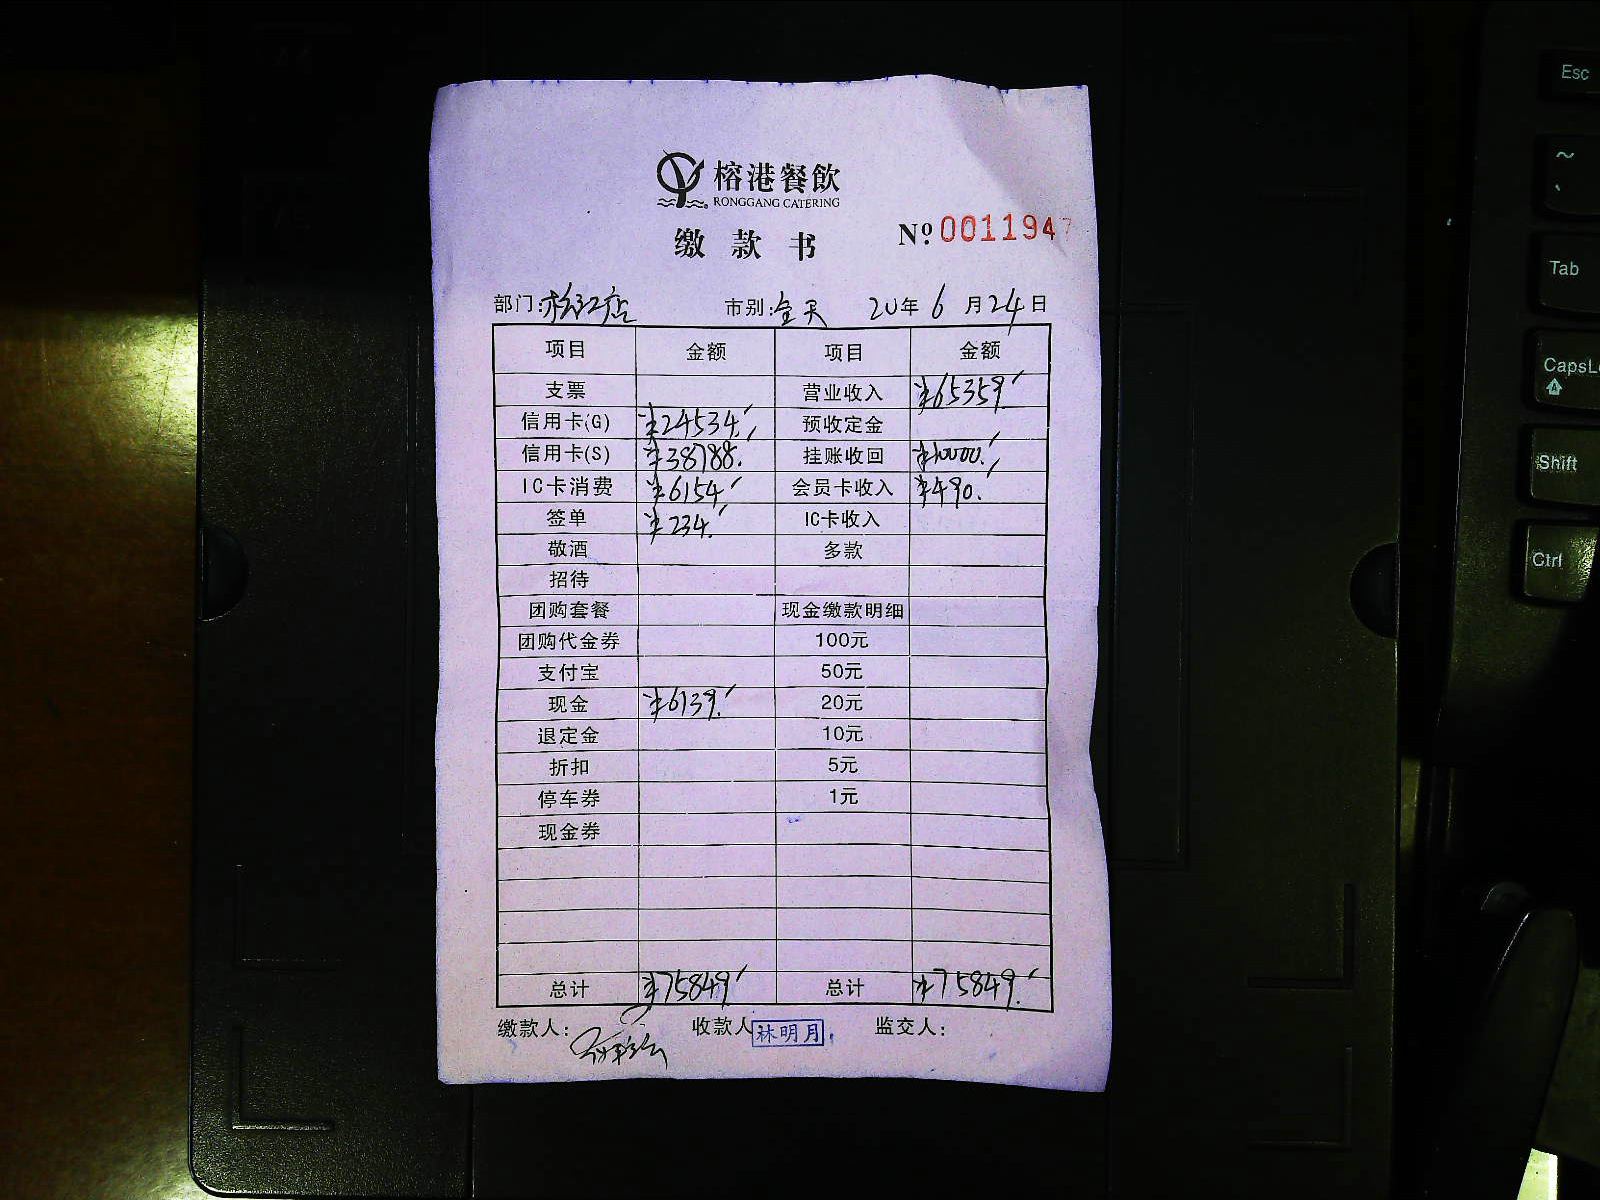 榕港餐飲
RONGGANG CATERING
缴款书
№ 0011947
部门: 松江店 市别: 全天 20年 6月 24日
项目 金额 项目 金额
支票 营业收入 ¥65359.
信用卡(G) ¥24534. 预收定金
信用卡(S) ¥38788. 挂账收回 ¥10000.
IC卡消费 ¥6154 会员卡收入 ¥490.
签单 ¥234. IC卡收入
敬酒 多款
招待
团购套餐 现金缴款明细
团购代金券 100元
支付宝 50元
现金 ¥6139. 20元
退定金 10元
折扣 5元
停车券 1元
现金券
总计 ¥75849 总计 ¥75849.
缴款人: 收款人 林明月 监交人:
Esc
~
Tab
CapsLo
Shift
Ctrl